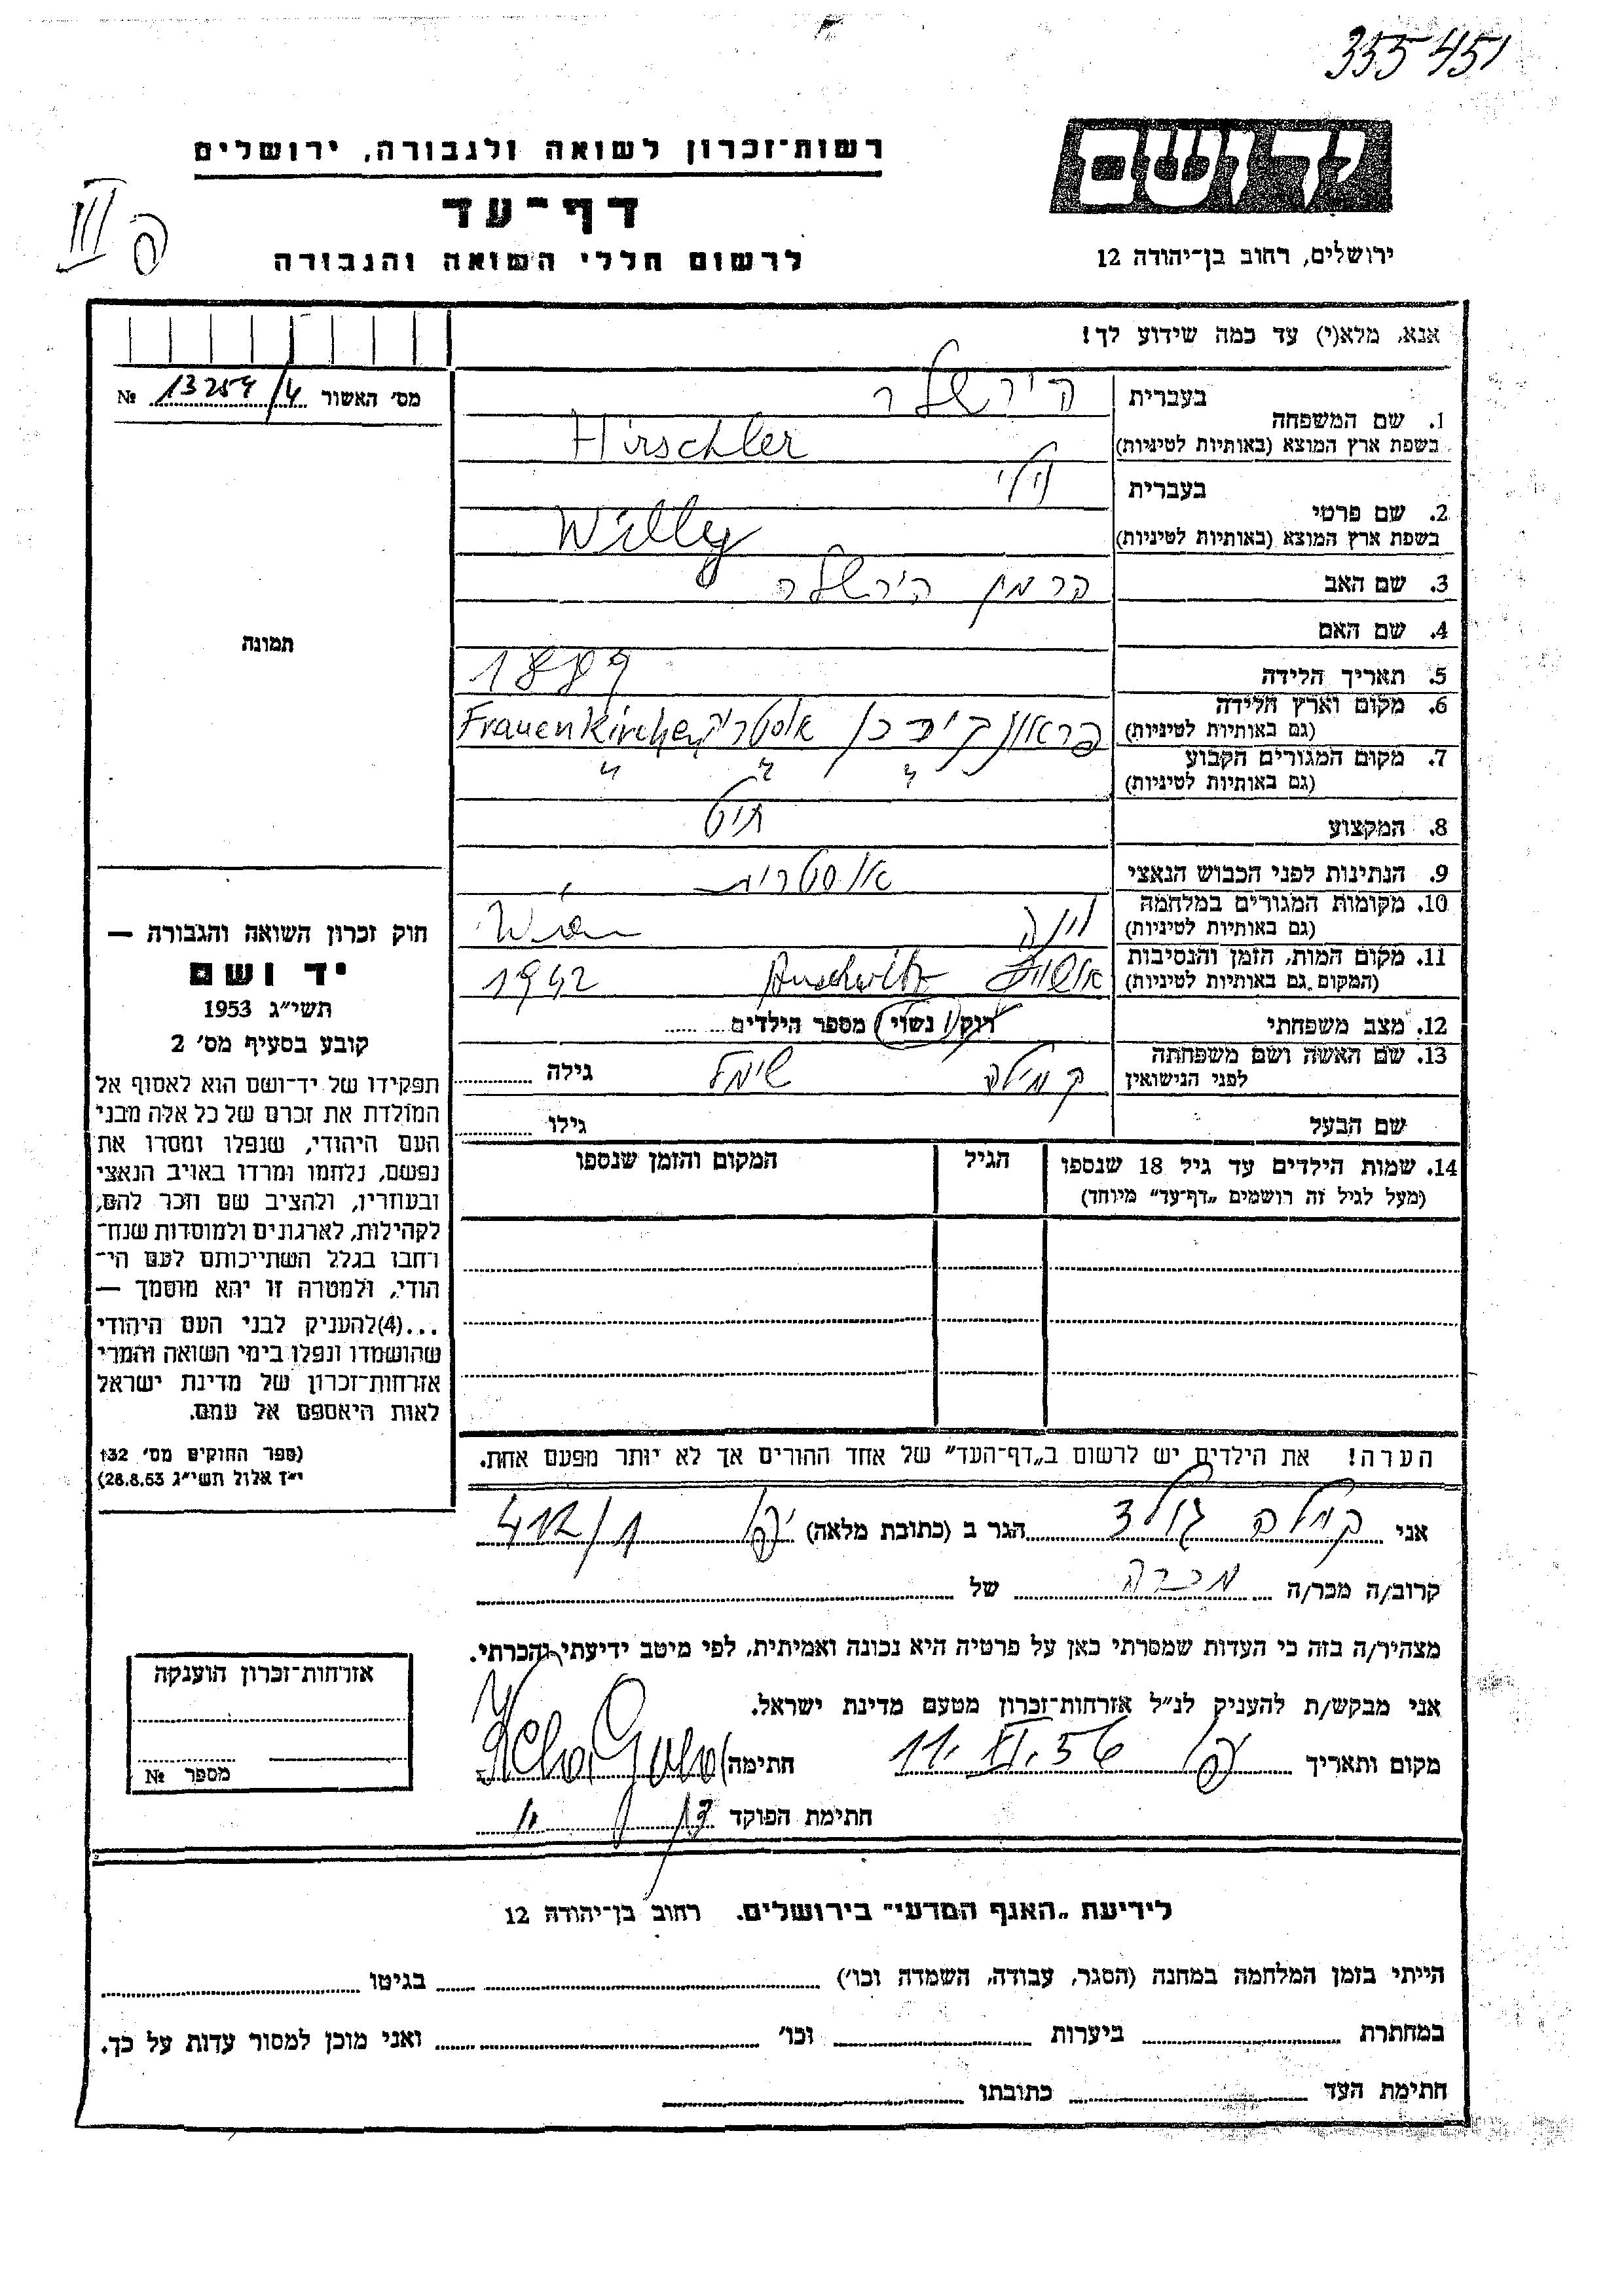 355451
רשות־זכרון לשואה ולגבורה, ירושלים
דף־עד
לרשום חללי השואה והגבורה
ידושם
ירושלים, רחוב בן־יהודה 12
III
אנא, מלא(י) עד כמה שידוע לך!
מס׳ האשור 13254/4 №
תמונה
1. שם המשפחה
בעברית הירשלר
בשפת ארץ המוצא (באותיות לטיניות) Hirschler
2. שם פרטי
בעברית וילי
בשפת ארץ המוצא (באותיות לטיניות) Willy
3. שם האב הרמן הירשלר
4. שם האם
5. תאריך הלידה 1889
6. מקום וארץ הלידה פראונקירכן אוסטריה Frauenkirchen
(גם באותיות לטיניות)
7. מקום המגורים הקבוע " " "
(גם באותיות לטיניות)
8. המקצוע
9. הנתינות לפני הכבוש הנאצי אוסטרית
10. מקומות המגורים במלחמה וינה Wien
(גם באותיות לטיניות)
11. מקום המות, הזמן והנסיבות אושויץ Auschwitz 1942
(המקום גם באותיות לטיניות)
12. מצב משפחתי רווק/נשוי/מספר הילדים
13. שם האשה ושם משפחתה קמילה גילה
לפני הנישואין
שם הבעל גילו
14. שמות הילדים עד גיל 18 שנספו הגיל המקום והזמן שנספו
(מעל לגיל זה רושמים „דף־עד״ מיוחד)
הערה! את הילדים יש לרשום ב„דף־העד״ של אחד ההורים אך לא יותר מפעם אחת.
חוק זכרון השואה והגבורה —
יד ושם
תשי״ג 1953
קובע בסעיף מס׳ 2
תפקידו של יד־ושם הוא לאסוף אל
המולדת את זכרם של כל אלה מבני
העם היהודי, שנפלו ומסרו את
נפשם, נלחמו ומרדו באויב הנאצי
ובעוזריו, ולהציב שם וזכר להם,
לקהילות, לארגונים ולמוסדות שנח־
רבו בגלל השתייכותם לעם הי־
הודי, ולמטרה זו יהא מוסמך —
...(4)להעניק לבני העם היהודי
שהושמדו ונפלו בימי השואה והמרי
אזרחות־זכרון של מדינת ישראל
לאות היאספם אל עמם.
(ספר החוקים מס׳ 132
י״ז אלול תשי״ג 28.8.53)
אני גולד הגר ב (כתובת מלאה) 412/1
קרוב/ה מכר/ה מכרה של
מצהיר/ה בזה כי העדות שמסרתי כאן על פרטיה היא נכונה ואמיתית, לפי מיטב ידיעתי והכרתי.
אני מבקש/ת להעניק לנ״ל אזרחות־זכרון מטעם מדינת ישראל.
מקום ותאריך 11. XI. 56 חתימה
חתימת הפוקד
אזרחות־זכרון הוענקה
מספר №
לידיעת „האגף המדעי״ בירושלים. רחוב בן־יהודה 12
הייתי בזמן המלחמה במחנה (הסגר, עבודה, השמדה וכו׳) בגיטו
במחתרת ביערות וכו׳ ואני מוכן למסור עדות על כך.
חתימת העד כתובתו